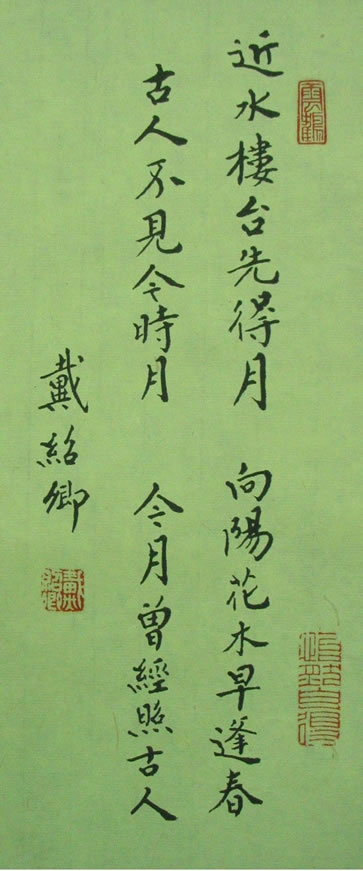 近水樓台先得月 向陽花木早逢春
古人不見今時月 今月曾經照古人
戴紹卿
戴紹卿